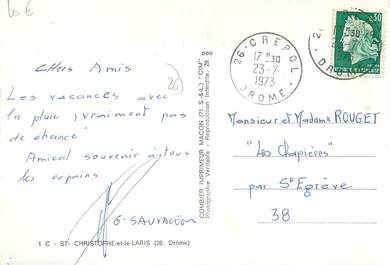 10 €
Chers Amis
26
Les vacances avec
la pluie, vraiment pas
de chance
Amical souvenir à tous
les copains
G. SAUVAGEON
1 C - ST- CHRISTOPHE-et-le-LARIS (26. Drôme)
COMBIER IMPRIMEUR MACON (71. S.-&-L.) "CIM"
Photographie Véritable - Reproduction Interdite. 29.
26 - CREPOL
17 H 30
23-7
1973
DROME
0,30
Monsieur et Madame ROUGET
"Les Charières"
par St Egrève
38